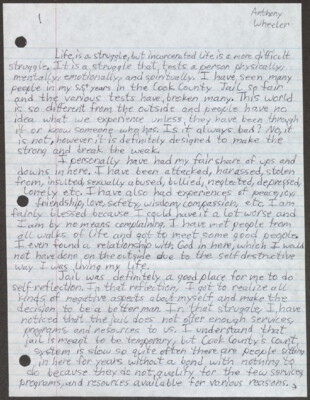 1
Anthony
Wheeler
Life, is a struggle, but incarcerated life is a more difficult
struggle. It is a struggle that, tests a person physically,
mentally, emotionally, and spiritually. I have seen, many
people in my 5.5 years in the Cook County Jail so far
and the various tests have, broken many. This world
is so different from the outside and people have no
idea what we experience unless, they have been through
it or know someone who has. Is it always bad? No, it
is not, however, it is definitely designed to make the
strong and break the weak.
I personally have had my fair share of ups and
downs in here. I have been attacked, harassed, stolen
from, insulted, sexually abused, bullied, neglected, depressed,
lonely etc. I have also had experiences of peace, joy,
friendship, love, safety, wisdom, compassion, etc. I am
fairly blessed because, I could have it a lot worse and
I am by no means complaining. I have met people from
all walks of life and got to meet some good people.
I even found a relationship with God in here, which I would
not have done on the outside due to the self destructive
way I was living my life.
Jail was definitely a good place for me to do
self reflection. In that reflection, I got to realize all
kinds of negative aspects about myself and make the
decision to be a better man. In that struggle I, have
noticed that the jail does not offer enough services,
programs and resources to us. I understand that
jail is meant to be temporary, but Cook County's court
system is slow so quite often there are people sitting
in here for years without a bond with nothing to
do because they do not, qualify for the few services,
programs, and resources available for various reasons.